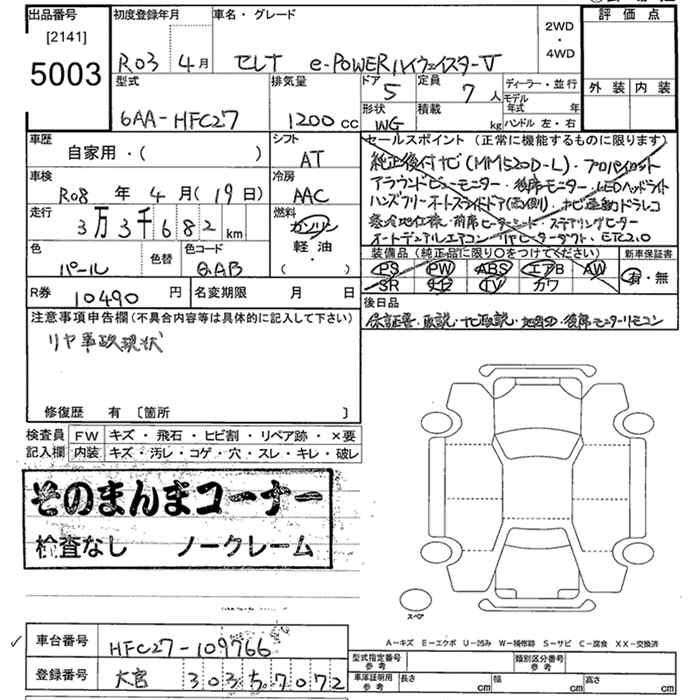 出品番号
[2141]
5003
初度登録年月
R03 4月
車名・グレード
セレナ e-POWERハイウェイスターV
2WD
・
4WD
評価点
外装 内装
型式
6AA-HFC27
排気量
1200cc
ドア 5
定員 7人
形状 WG
積載 kg
ディーラー・並行
モデル年式 年
ハンドル 左・右
車歴
自家用・( )
シフト
AT
車検
R08年4月(19日)
冷房
AAC
走行
3万3千682km
燃料
ガソリン
軽油
( ・ )
色
パール
色替
色コード
QAB
R券 10490円
名変期限 月 日
セールスポイント(正常に機能するものに限ります)
純正後付ナビ(MM520D-L)・プロパイロット
アラウンドビューモニター・後席モニター・LEDヘッドライト
ハンズフリーオートスライドドア(両側)・ナビ連動ドラレコ
寒冷地仕様・前席ヒーターシート・ステアリングヒーター
オートデュアルエアコン・リヤヒーターダクト・ETC2.0
装備品(純正品に限り○をつけてください)
新車保証書
PS PW ABS エアB AW
SR ナビ TV カワ
有・無
後日品
保証書・取説・ナビ取説・後席モニターリモコン
注意事項申告欄(不具合内容等は具体的に記入して下さい)
リヤ事故現状
修復歴 有 〔箇所 〕
検査員記入欄
FW キズ・飛石・ヒビ割・リペア跡・×要
内装 キズ・汚レ・コゲ・穴・スレ・キレ・破レ
そのまんまコーナー
検査なし ノークレーム
スペア
A-キズ E-エクボ U-凹み W-補修跡 S-サビ C-腐食 XX-交換済
車台番号 HFC27-109766
登録番号 大宮 303 5 7072
型式指定番号 参考
類別区分番号 参考
車庫証明用 参考
長さ cm 幅 cm 高さ cm